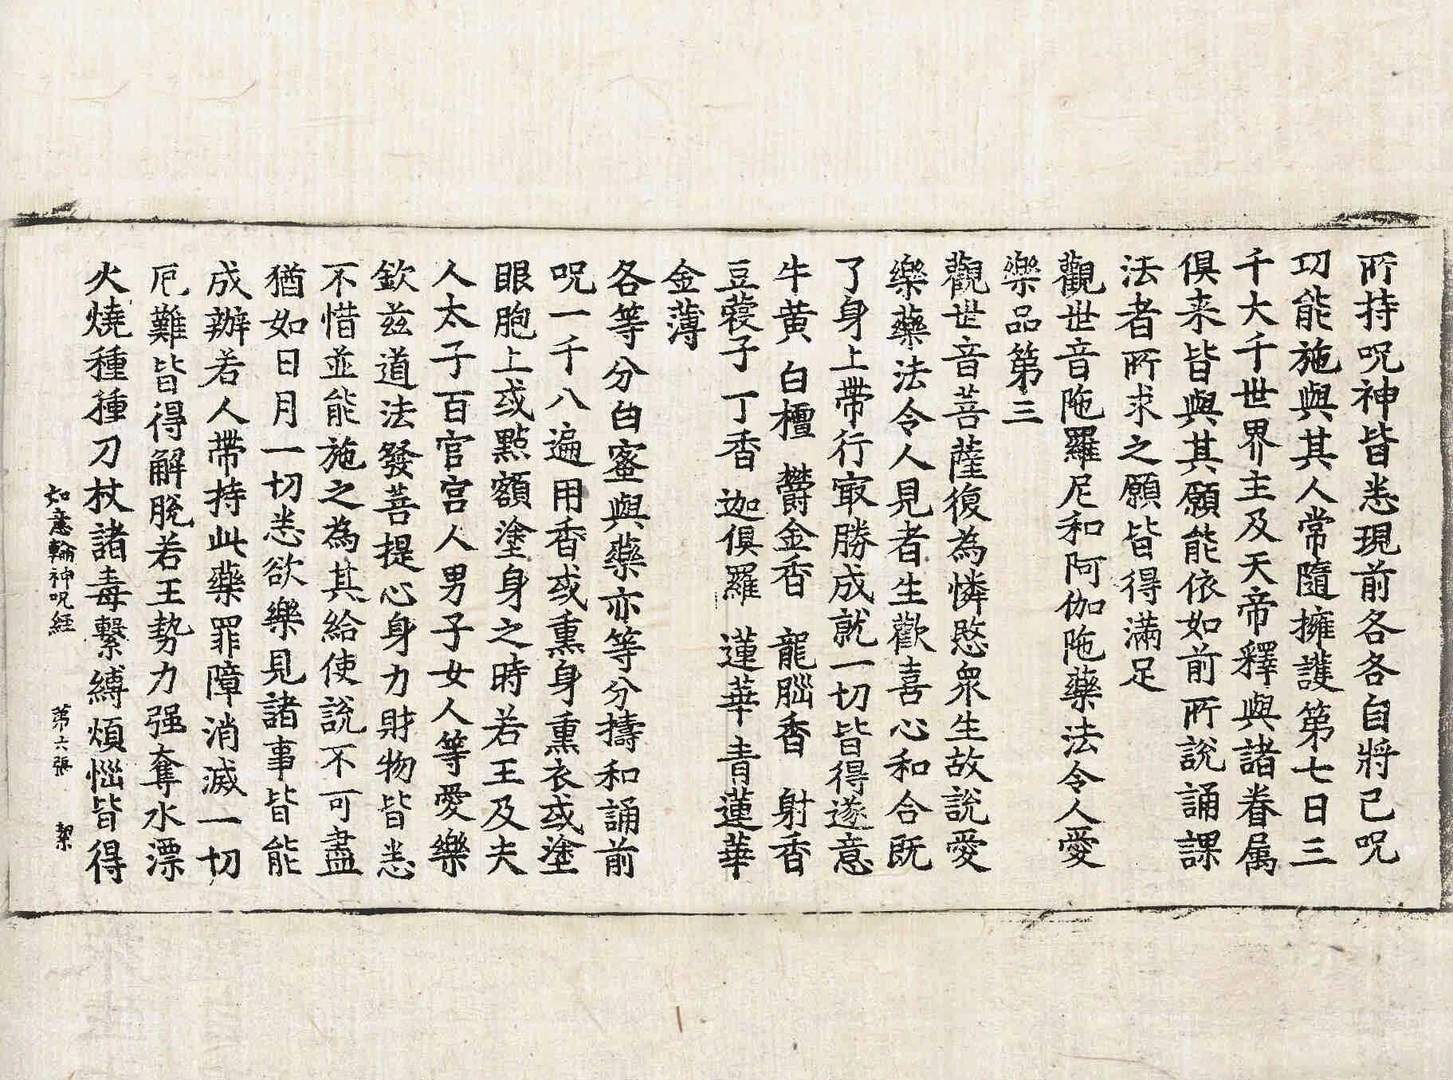 所持呪神皆悉現前各各自將己呪
功能施與其人常隨擁護第七日三
千大千世界主及天帝釋與諸眷属
俱来皆與其願能依如前所說誦課
法者所求之願皆得滿足
觀世音陁羅尼和阿伽陁藥法令人愛
樂品第三
觀世音菩薩復為憐愍眾生故說愛
樂藥法令人見者生歡喜心和合既
了身上帶行㝡勝成就一切皆得遂意
牛黄 白檀 欝金香 龍腦香 射香
豆蔻子 丁香 迦俱羅 蓮華 青蓮華
金薄
各等分白蜜與藥亦等分擣和誦前
呪一千八遍用香或熏身熏衣或塗
眼胞上或點額塗身之時若王及夫
人太子百官宫人男子女人等愛樂
欽兹道法發菩提心身力財物皆悉
不惜並能施之為其給使說不可盡
猶如日月一切悉欲樂見諸事皆能
成辦若人帶持此藥罪障消滅一切
厄難皆得解脫若王勢力强奪水漂
火燒種種刀杖諸毒繫縛煩惱皆得
如意輪神呪經 第六張 絜